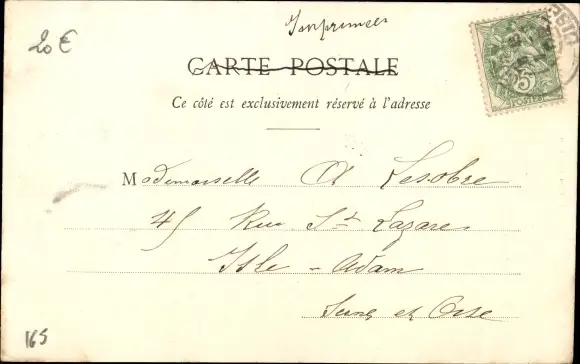 Imprimés
20 €
CARTE POSTALE
Ce côté est exclusivement réservé à l'adresse
5
POSTES
Mademoiselle A Lesobre
45 Rue St Lazare
Isle-Adam
Seine et Oise
165